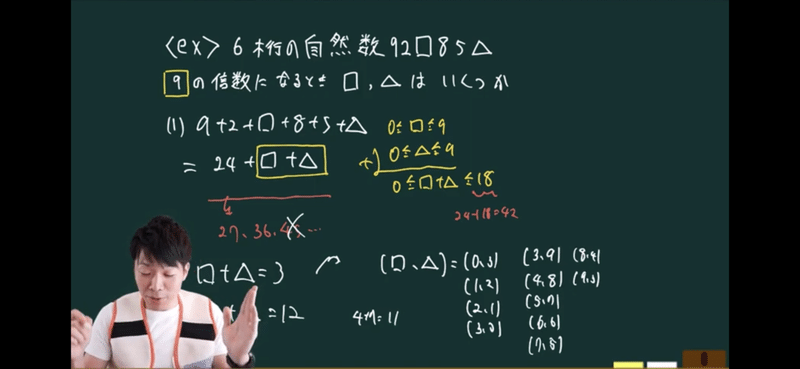 <ex> 6桁の自然数92□85△
9の倍数になるとき □,△は いくつか
(1) 9+2+□+8+5+△
= 24+□+△
0≦□≦9
+) 0≦△≦9
0≦□+△≦18
24+18=42
27, 36, 45...
□+△=3
=12
(□、△)=(0,3)
(1,2)
(2,1)
(3,0)
4+7=11
(3,9)
(4,8)
(5,7)
(6,6)
(7,5)
(8,4)
(9,3)